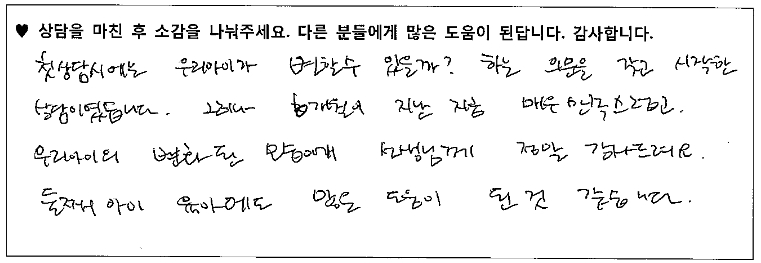 ♥ 상담을 마친 후 소감을 나눠주세요. 다른 분들에게 많은 도움이 된답니다. 감사합니다.
첫상담시에는 우리아이가 변할수 있을까? 하는 의문을 갖고 시작한
상담이였습니다. 그러나 6개월이 지난 지금 매우 만족스럽고.
우리아이의 변화된 모습에게 선생님께 정말 감사드려요.
둘째 아이 육아에도 많은 도움이 된 것 같습니다.